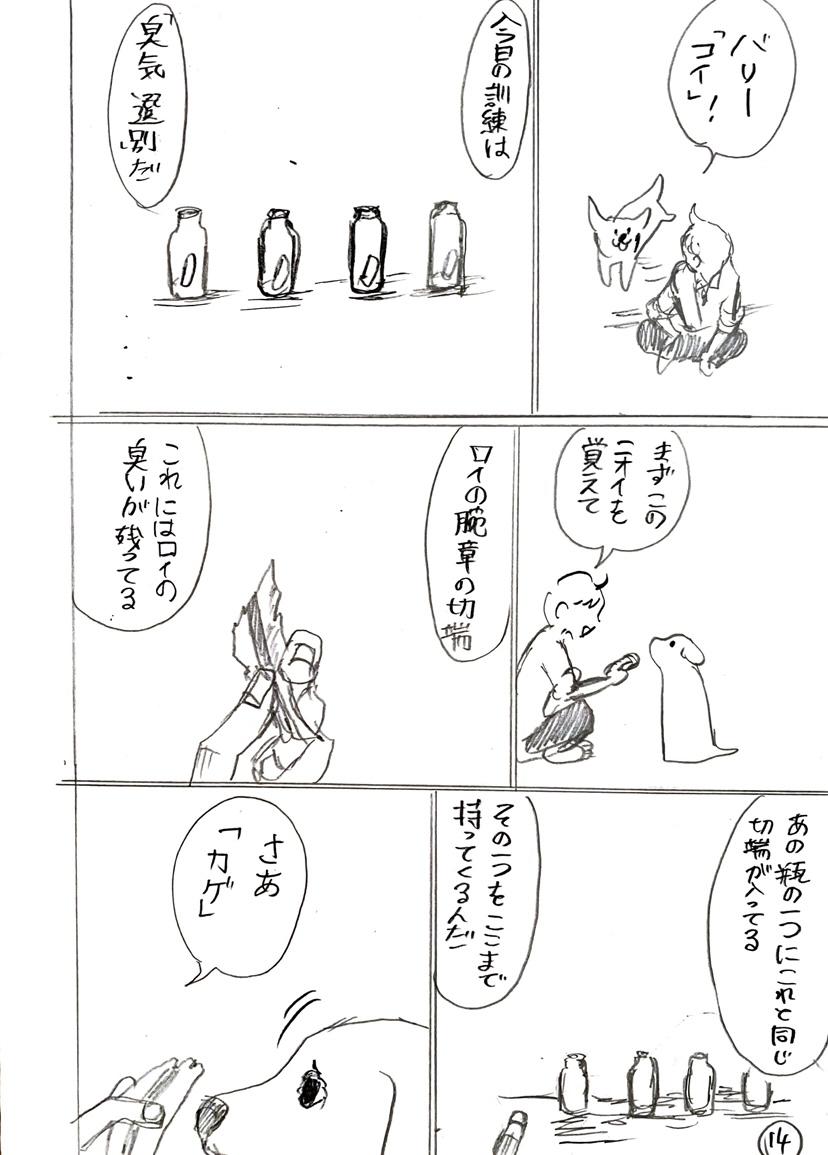 バリー
「コイ」!
今日の訓練は
「臭気選別」だ
まずこの
ニオイを
覚えて
ロイの腕章の切端
これにはロイの
臭いが残ってる
あの瓶の一つにこれと同じ
切端が入ってる
その一つをここまで
持ってくるんだ
さあ
「カゲ」
14